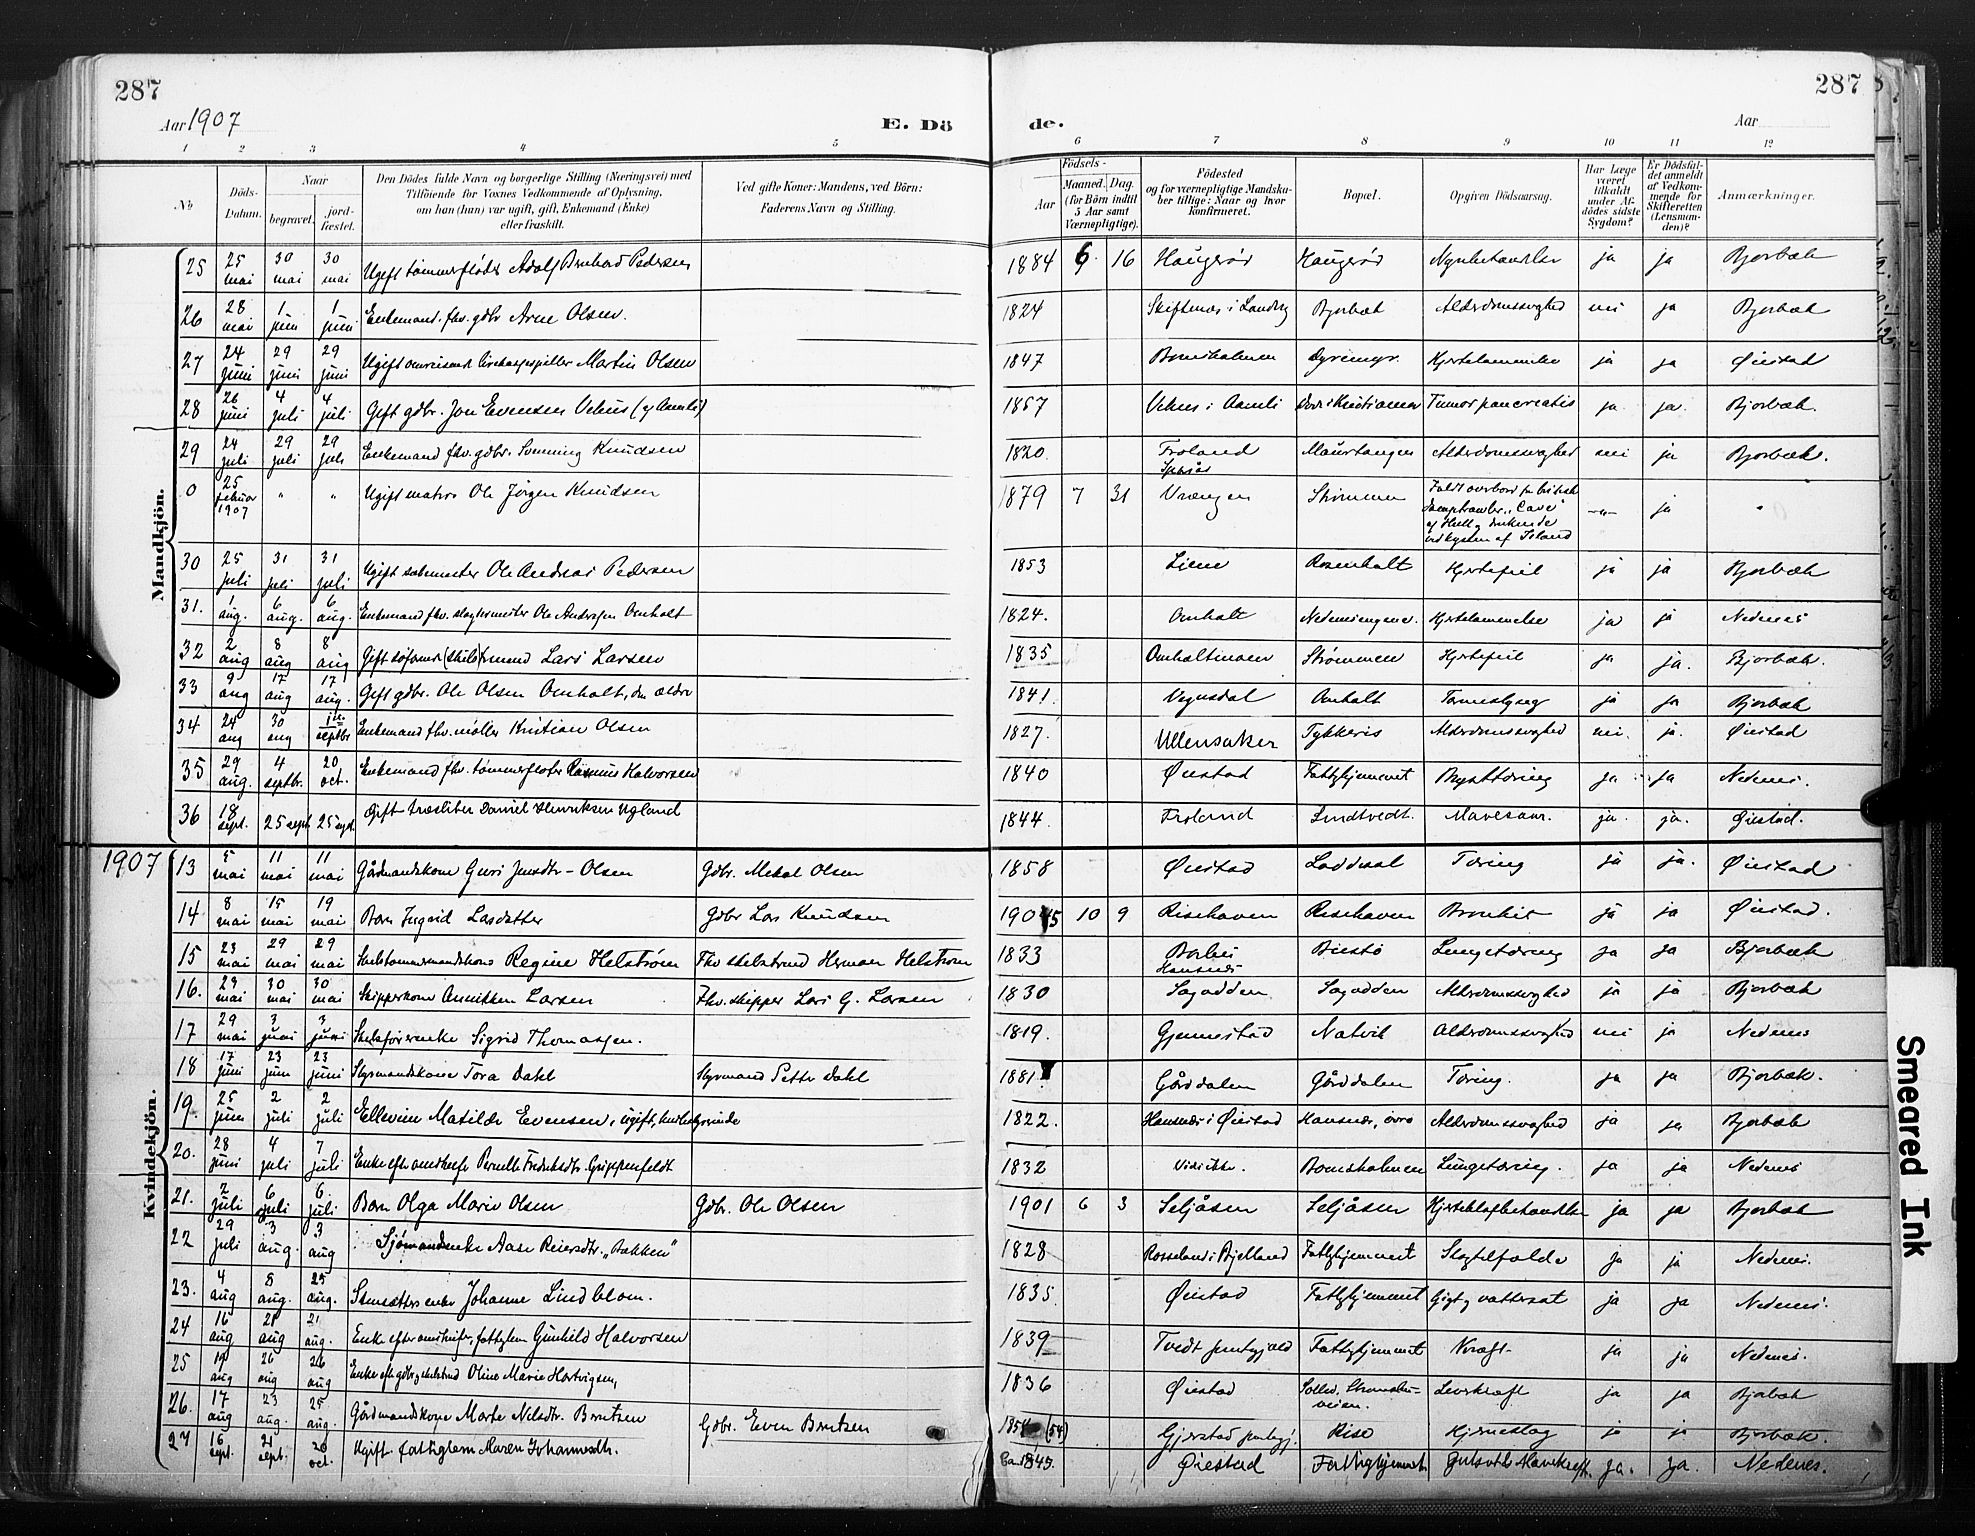 287
287
Aar 1907
E. Dö
de.
Aar
1 2 3 4 5 6 7 8 9 10 11 12
№
Döds-
Datum.
Naar
begravet.
jord-
fæstet.
Den Dödes fulde Navn og borgerlige Stilling (Næringsvei) med
Tilföiende for Voxnes Vedkommende af Oplysning,
om han (hun) var ugift, gift, Enkemand (Enke)
eller fraskilt.
Ved gifte Koner: Mandens, ved Börn:
Faderens Navn og Stilling.
Födsels-
Aar
Maaned. Dag.
(for Börn indtil
5 Aar samt
Værnepligtige).
Födested
og for værnepligtige Mandska-
ber tillige: Naar og hvor
konfirmeret.
Bopæl.
Opgiven Dödsaarsag.
Har Læge
været
tilkaldt
under Af-
dödes sidste
Sygdom?
Er Dödsfal-
det anmeldt
af Vedkom-
mende for
Skifteretten
(Lensman-
den)?
Anmærkninger.
Mandkjön.
25 25 mai 30 mai 30 mai Ugift tømmerfløder Adolf Bernhard Pedersen 1884 6 16 Haugerød Haugerød ja ja Bjorbæk
26 28 mai 1 juni 1 juni Enkemand, fhv. gdbr Arne Olsen. 1824 Skiftenes i Landvig Bjorbæk Alderdomssvaghed nei ja Bjorbæk
27 24 juni 29 juni 29 juni Ugift Martin Olsen 1847 Bomsholmen Hjertelammelse ja ja Øiestad
28 26 juni 4 juli 4 juli Gift gdbr. Jon Evensen Vehus (af Aamli) 1857 Vehus i Aamli Tumor pancreatis ja ja Bjorbæk.
29 24 juli 29 juli 29 juli Enkemand fhv. gdbr. Knudsen 1820 Froland Maurtangen Alderdomssvaghed nei ja Bjorbæk.
0 25 februar 1907 " " Ugift matros Ole Jørgen Knudsen 1879 7 31 Vrængen Strømmen Faldt overbord fra britisk damptrawler "Cave" af Hull ved kysten af Island -"- ja "
30 25 juli 31 juli 31 juli Ugift Ole Andreas Pedersen 1853 Liene Rosenholt Hjertefeil ja ja Bjorbæk
31. 1 aug. 6 aug. 6 aug. Enkemand fhv. slagtermester Ole Andersen Omholt 1824. Omholt Nedenesengene. Hjertelammelse ja ja Nedenes
32 2 aug 8 aug 8 aug Gift Lars Larsen 1835 Omholtmoen Strømmen Hjertefeil ja ja. Bjorbæk.
33 9 aug 17 aug 17 aug. Gift gdbr. Ole Olsen Omholt, den ældre 1841. Vegusdal Omholt ja ja Bjorbæk
34 24 aug 30 aug 1ste septbr Enkemand fhv. møller Kristian Olsen 1827. Ullensaker Tykkeris Alderdomssvaghed nei. ja. Øiestad
35 29 aug. 4 septbr. 20 oct. Enkemand fhv. tømmerfløter Rasmus Halvorsen 1840 Øiestad Fattighjemmet Brysttæring ja ja Nedenes.
36 18 sept. 25 sept 25 sept. Gift træsliber Daniel Henriksen Ugland 1844. Froland Lundtvedt. Mavesaar. ja. ja. Øiestad.
1907
Kvindekjön.
13 5 mai 11 mai 11 mai Gårdmandskone Guri Jensdtr - Olsen Gdbr. Mekal Olsen 1858 Øiestad Loddesøl Tæring ja ja. Øiestad
14 8 mai 15 mai 19 mai Barn Ingrid Larsdatter Gdbr Lars Knudsen 1905 10 9 Risehaven Risehaven Bronkit ja ja Øiestad.
15 23 mai 29 mai 29 mai Regine Helstrøm Fhv skibstømmermand Herman Helstrøm 1833 Barbu Biestø Lungetæring ja ja Bjorbæk
16. 29 mai 30 mai 30 mai Skipperkone Annikken Larsen Fhv. skipper Lars G. Larsen 1830 Hansnes Sagodden Sagodden Alderdomssvaghed ja ja Bjorbæk
17 29 mai 3 juni 3 juni Skibsførerenke Sigrid Thomassen. 1819. Gjennestad Natvik Alderdomssvaghed nei ja Nedenes
18 17 juni 23 juni 23 juni Styrmandskone Tora Dahl Styrmand Petter Dahl 1881 Gårddalen Gårddalen Tæring. ja ja Bjorbæk.
19. 25 juni 2 juli 2 juli Ellevine Matilde Evensen, ugift, 1822. Hansnes i Øiestad Hansnes, øvre Alderdomssvaghed ja ja Bjorbæk
20. 28 juni 4 juli 7 juli Enke efter Pernelle Fredriksdtr. Grippenfeldt 1832 Vides ikke. Bomsholmen Lungetæring. ja ja Nedenes
21. 2 juli 6 juli 6 juli Barn Olga Marie Olsen Gdbr. Ole Olsen 1901 6 3 Seljåsen Seljåsen Hjerteklapbetændelse ja ja Bjorbæk
22 29 juli 3 aug. 3 aug Sjømandsenke Aase Reiersdtr. "Bakken" 1828 Rosseland i Bjelland Fattighjemmet Slagtilfælde ja ja Nedenes.
23. 4 aug 8 aug. 25 aug. Johanne Lindblom. 1835 Øiestad Fattighjemmet Gigt og vattersot ja ja Nedenes.
24 16 aug 21 aug 21 aug. Enke efter fattiglem Gunhild Halvorsen 1839 Fattighjemmet ja ja Nedenes.
25 19 aug 26 aug 26 aug Enke efter Oline Marie Hartvigsen, 1836 Øiestad ja ja Bjorbæk
26. 17 aug 23 aug. 25 aug. Gårdmandskone Marte Nilsdtr. Berntsen Gdbr. Even Berntsen 1854 (54) Rise Hjerneslag ja ja Bjorbæk.
27 16 sept. 21 sept. 20 oct. Ugift fattiglem Maren Johannesdtr. Ca. 1845. Øiestad Fattighjemmet ja. ja. Nedenes.
Smeared Ink